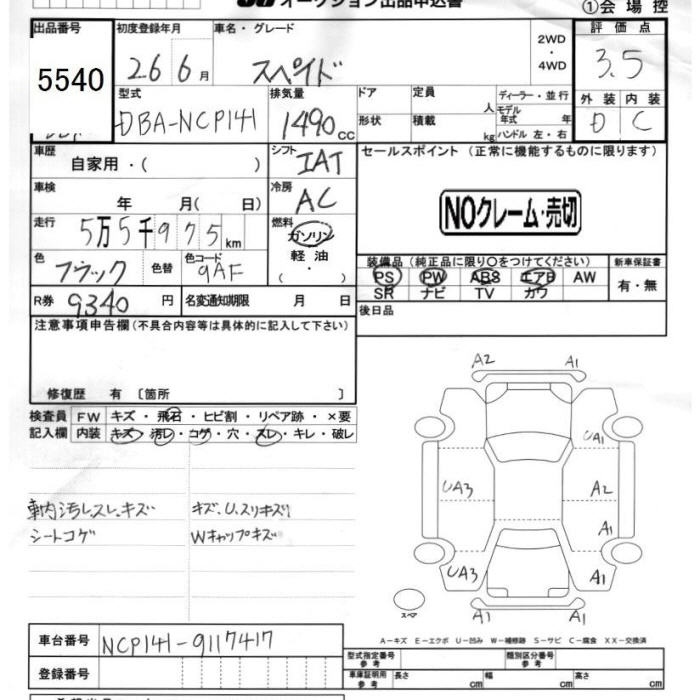 オークション出品申込書 ①会場控
出品番号 初度登録年月 車名・グレード 2WD・4WD 評価点
5540 26 6月 スペイド 3.5
型式 排気量 ドア 定員 人 ディーラー・並行 外装 内装
DBA-NCP141 1490cc 形状 積載 kg モデル年式 年 ハンドル 左・右 D C
車歴 自家用・( ) シフト IAT セールスポイント (正常に機能するものに限ります)
車検 年 月( 日) 冷房 AC NOクレーム・売切
走行 5万5千975km 燃料 ガソリン 軽油 ( ・ )
色 ブラック 色替 色コード 9AF 装備品(純正品に限り○をつけてください) 新車保証書
PS PW ABS エアB AW 有・無
SR ナビ TV カワ
R券 9340円 名変通知期限 月 日 後日品
注意事項申告欄(不具合内容等は具体的に記入して下さい)
修復歴 有 〔箇所 〕
A2 A1
検査員 FW キズ・飛石・ヒビ割・リペア跡・×要
記入欄 内装 キズ・汚レ・コゲ・穴・スレ・キレ・破レ
UA1
UA3 A2
車内汚レ.スレ.キズ キズ.U.スリキズ!
A1
シートコゲ Wキャップキズ
UA3 A1
スペア A1 A1
A−キズ E−エクボ U−凹み W−補修跡 S−サビ C−腐食 XX−交換済
車台番号 NCP141-9117417
型式指定番号 参考 類別区分番号 参考
登録番号 車庫証明用 参考 長さ cm 幅 cm 高さ cm